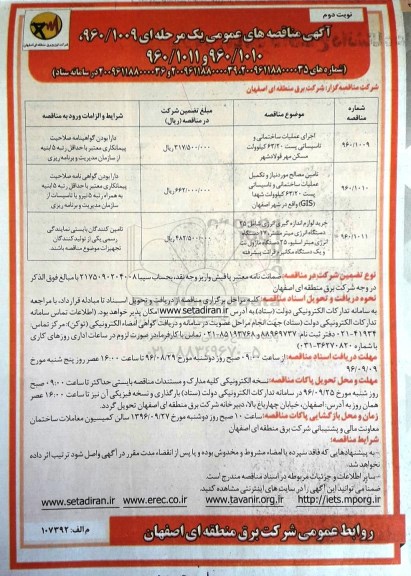 نوبت دوم
آگهی مناقصه های عمومی یک مرحله ای ۹۶۰/۱۰۰۹،
۹۶۰/۱۰۱۰ و ۹۶۰/۱۰۱۱
شرکت مناقصه گزار: شرکت برق منطقه ای اصفهان
شماره مناقصه
موضوع مناقصه
مبلغ تضمین شرکت در مناقصه (ریال)
شرایط و الزامات ورود به مناقصه
۹۶۰/۱۰۰۹
اجرای عملیات ساختمانی و
تاسیساتی پست ۶۳/۲۰ کیلوولت
مسکن مهر فولادشهر
۳۱۷/۵۰۰/۰۰۰ ریال
دارا بودن گواهینامه صلاحیت
پیمانکاری معتبر با حداقل رتبه ۵ ابنیه
از سازمان مدیریت و برنامه ریزی
۹۶۰/۱۰۱۰
تامین مصالح مورد نیاز و تکمیل
عملیات ساختمانی و تاسیساتی
پست ۶۳/۲۰ کیلوولت شهدا
(GIS) واقع در شهر اصفهان
۶۶۲/۰۰۰/۰۰۰ ریال
دارا بودن گواهی نامه صلاحیت
پیمانکاری معتبر با حداقل رتبه ۵ ابنیه
به همراه رتبه ۵ نیرو یا تاسیسات از
سازمان مدیریت و برنامه ریزی
۹۶۰/۱۰۱۱
خرید لوازم اندازه گیری انرژی شامل ۲۵
و یک دستگاه مکانیزم قرائت پیشرفته
۴۸۲/۵۰۰/۰۰۰ ریال
تامین کنندگان بایستی نمایندگی
رسمی یکی از تولید کنندگان
تجهیزات موضوع مناقصه باشند
نوع تضمین شرکت در مناقصه: ضمانت نامه معتبر یا فیش واریز وجه نقد بحساب سیبا ۲۱۷۵۰۹۰۲۰۴۰۰۸ با مبالغ فوق الذکر
در وجه شرکت برق منطقه ای اصفهان
نحوه دریافت و تحویل اسناد مناقصه: کلیه مراحل برگزاری مناقصه از دریافت و تحویل اسناد تا مبادله قرارداد، با مراجعه
به سامانه تدارکات الکترونیکی دولت (ستاد) به آدرس www.setadiran.ir امکان پذیر خواهد بود. (اطلاعات تماس سامانه
تدارکات الکترونیکی دولت (ستاد) جهت انجام مراحل عضویت در سامانه و دریافت گواهی امضاء الکترونیکی (توکن): مرکز تماس
۴۱۹۳۴-۰۲۱ دفتر ثبت نام: ۸۸۹۶۹۷۳۷ و ۸۵۱۹۳۷۶۸-۰۲۱ تماس با کارفرما در صورت لزوم در ساعات اداری روزهای کاری
با شماره ۳۶۲۷۰۸۲۰-۰۳۱)
مهلت دریافت اسناد مناقصه: از ساعت ۰۹:۰۰ صبح روز دوشنبه مورخ ۹۶/۰۸/۲۹ تا ساعت ۱۶:۰۰ عصر روز پنج شنبه مورخ
۹۶/۰۹/۰۹
مهلت و محل تحویل پاکات مناقصه: نسخه الکترونیکی کلیه مدارک و مستندات مناقصه بایستی حداکثر تا ساعت ۰۹:۰۰ صبح
روز شنبه مورخ ۹۶/۰۹/۲۵ در سامانه تدارکات الکترونیکی دولت (ستاد) بارگذاری و نسخه فیزیکی آن نیز تا ساعت ۱۶:۰۰ عصر
همان روز به آدرس، اصفهان، خیابان چهارباغ بالا، دبیرخانه شرکت برق منطقه ای اصفهان تحویل گردد.
زمان و محل بازگشایی پاکات مناقصه: ساعت ۱۰ صبح روز دوشنبه مورخ ۱۳۹۶/۰۹/۲۷ سالن کمیسیون معاملات ساختمان
معاونت مالی و پشتیبانی شرکت برق منطقه ای اصفهان
شرایط مناقصه:
- به پیشنهادهایی که فاقد سپرده یا امضاء مشروط و مخدوش بوده و یا پس از انقضاء مدت مقرر در آگهی واصل شود ترتیب اثر داده
نخواهد شد.
- سایر اطلاعات و جزئیات مربوطه در اسناد مناقصه مندرج است.
ضمنا می توانید این آگهی را در سایت های اینترنتی مشاهده کنید.
www.setadiran.ir www.erec.co.ir www.tavanir.org.ir http://iets.mporg.ir
روابط عمومی شرکت برق منطقه ای اصفهان
م الف: ۱۰۷۳۹۲